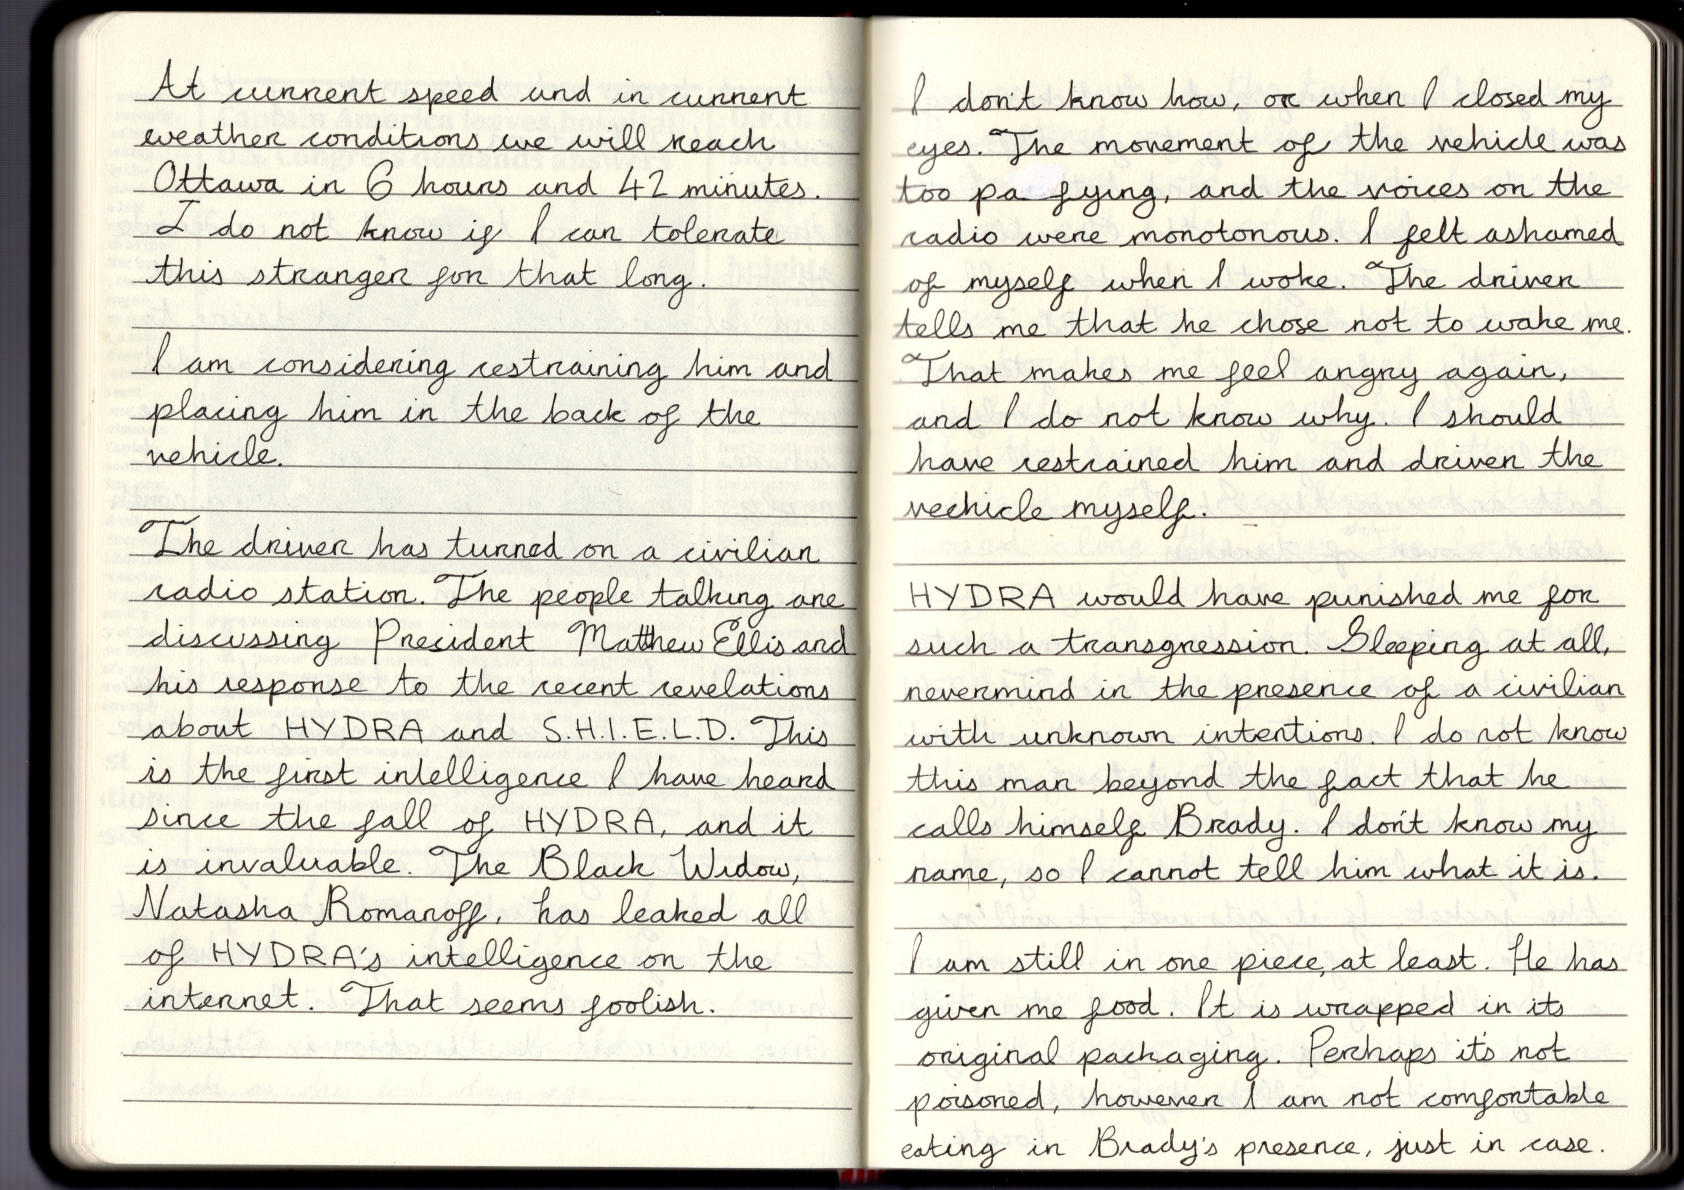 At current speed and in current
weather conditions we will reach
Ottawa in 6 hours and 42 minutes.
I do not know if I can tolerate
this stranger for that long.
I am considering restraining him and
placing him in the back of the
vehicle.
The driver has turned on a civilian
radio station. The people talking are
discussing President Matthew Ellis and
his response to the recent revelations
about HYDRA and S.H.I.E.L.D. This
is the first intelligence I have heard
since the fall of HYDRA, and it
is invaluable. The Black Widow,
Natasha Romanoff, has leaked all
of HYDRA's intelligence on the
internet. That seems foolish.
I don't know how, or when I closed my
eyes. The movement of the vehicle was
too pa fying, and the voices on the
radio were monotonous. I felt ashamed
of myself when I woke. The driver
tells me that he chose not to wake me.
That makes me feel angry again,
and I do not know why. I should
have restrained him and driven the
vechicle myself.
HYDRA would have punished me for
such a transgression. Sleeping at all,
nevermind in the presence of a civilian
with unknown intentions. I do not know
this man beyond the fact that he
calls himself Brady. I don't know my
name, so I cannot tell him what it is.
I am still in one piece, at least. He has
given me food. It is wrapped in its
original packaging. Perhaps it's not
poisoned, however I am not comfortable
eating in Brady's presence, just in case.